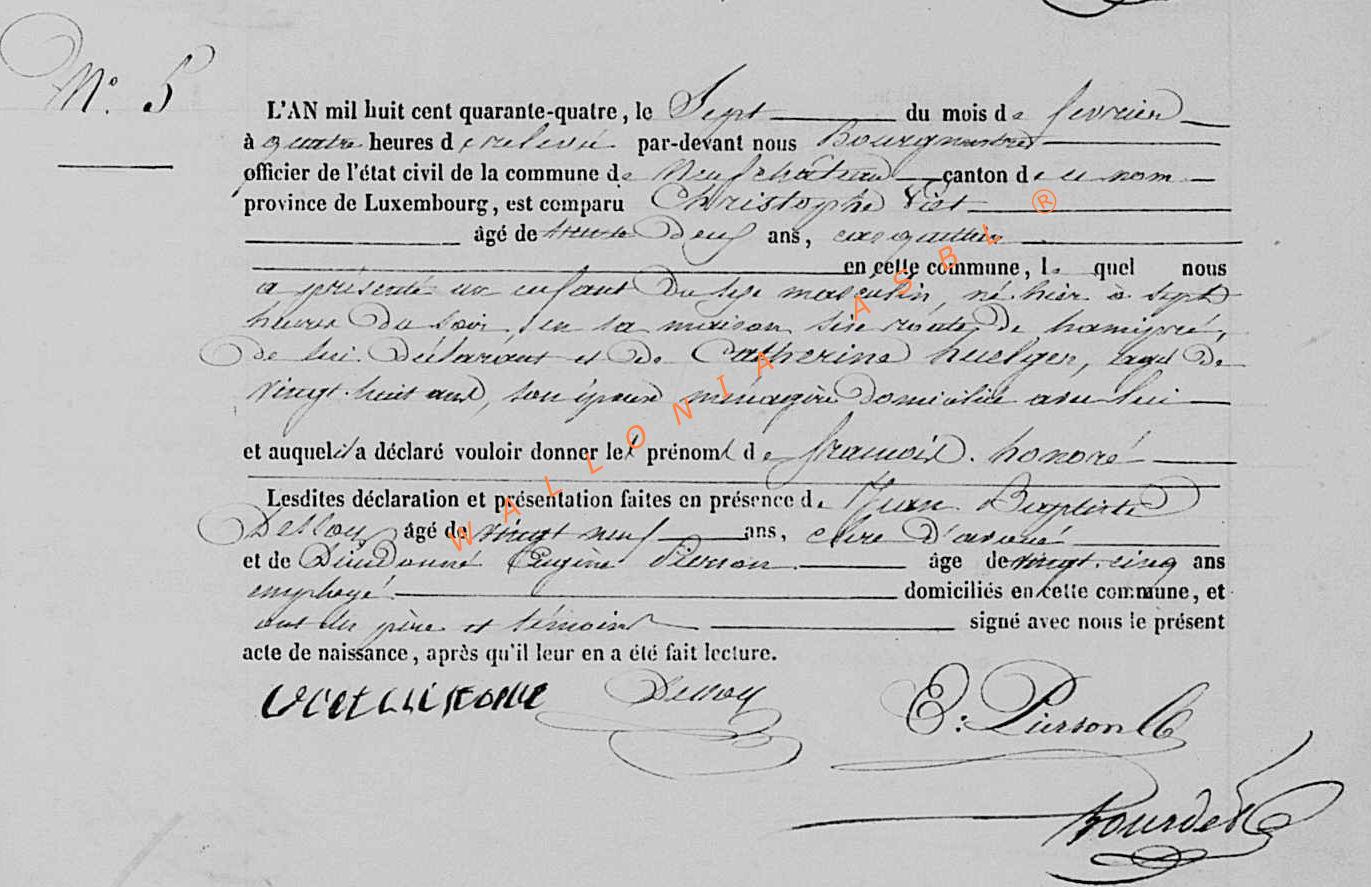 N° 5
L'AN mil huit cent quarante-quatre, le Sept du mois de fevrier
à quatre heures de relevée par-devant nous Bourgmestre
officier de l'état civil de la commune de Neufchâteau canton de ce nom
province de Luxembourg, est comparu Christophe Viet
âgé de trente Deux ans,
en cette commune, le quel nous
a présenté un enfant Du sexe masculin, né hier à sept
heures Du soir, en sa maison sise route de hamipré,
De lui Déclarant et De Catherine huelgen, agée De
vingt-huit ans, son épouse ménagère Domiciliée avec lui
et auquel il a déclaré vouloir donner les prénoms de francois honoré
Lesdites déclaration et présentation faites en présence de Jean Baptiste
Dessoy âgé de vingt neuf ans, clerc D'avoué
et de Dieudonné Eugène Pierson âge de vingt-cinq ans
employé domiciliés en cette commune, et
ont les père et témoins signé avec nous le présent
acte de naissance, après qu'il leur en a été fait lecture.
Dessoy
E: Pierson
WALLONIA ASBL ®